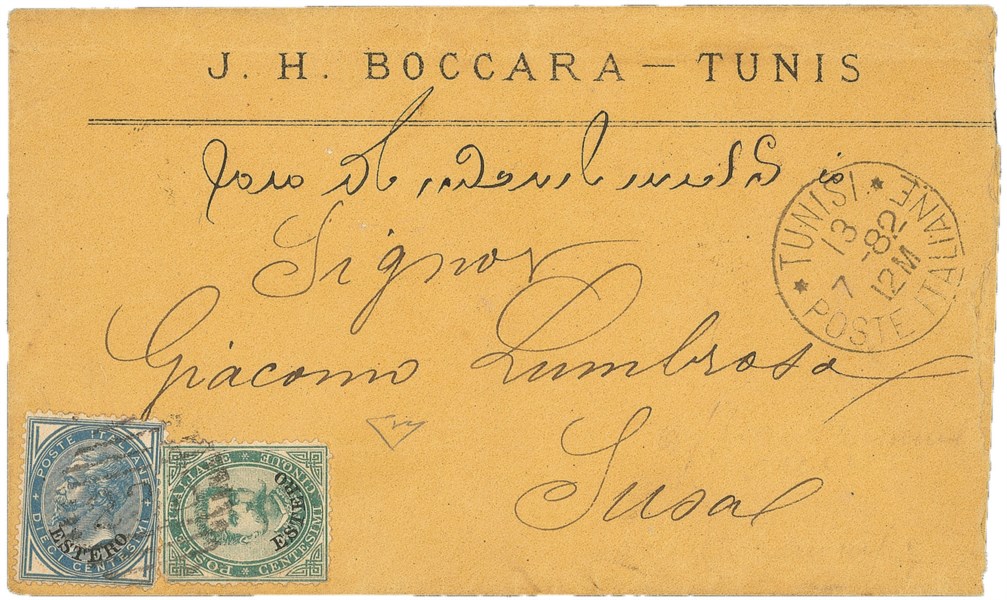 J. H. BOCCARA — TUNIS
Signor
Giacomo Lumbroso
Susa
* TUNISI * POSTE ITALIANE
13
7 -82
12M
+ POSTE ITALIANE + DIECI CENTESIMI
ESTERO
* POSTE ITALIANE * CENTESIMI CINQUE
ESTERO